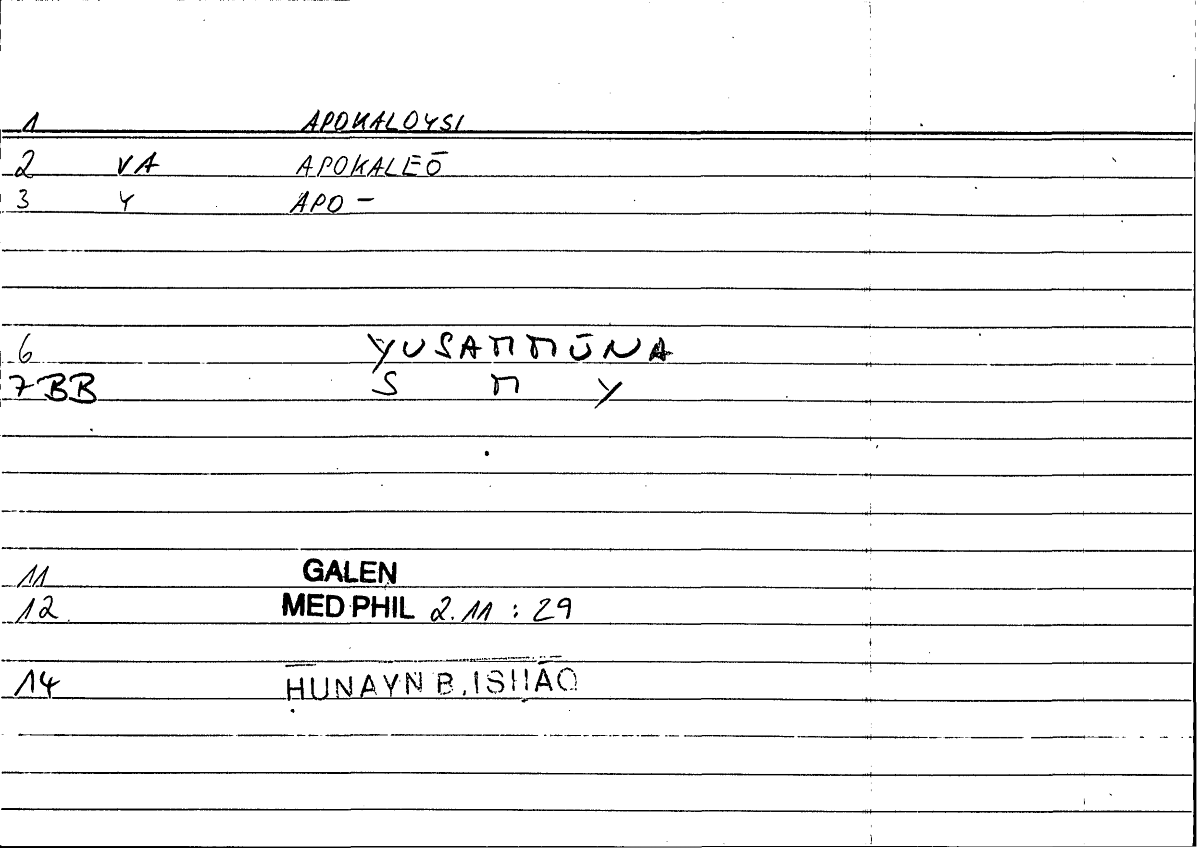 1 APOKALOYSI
2 VA APOKALEŌ
3 Y APO-
6 YUSAMMŪNA
7 BB S M Y
11 GALEN
12 MED PHIL 2.11 : 29
14 ḤUNAYN B. ISḤĀQ